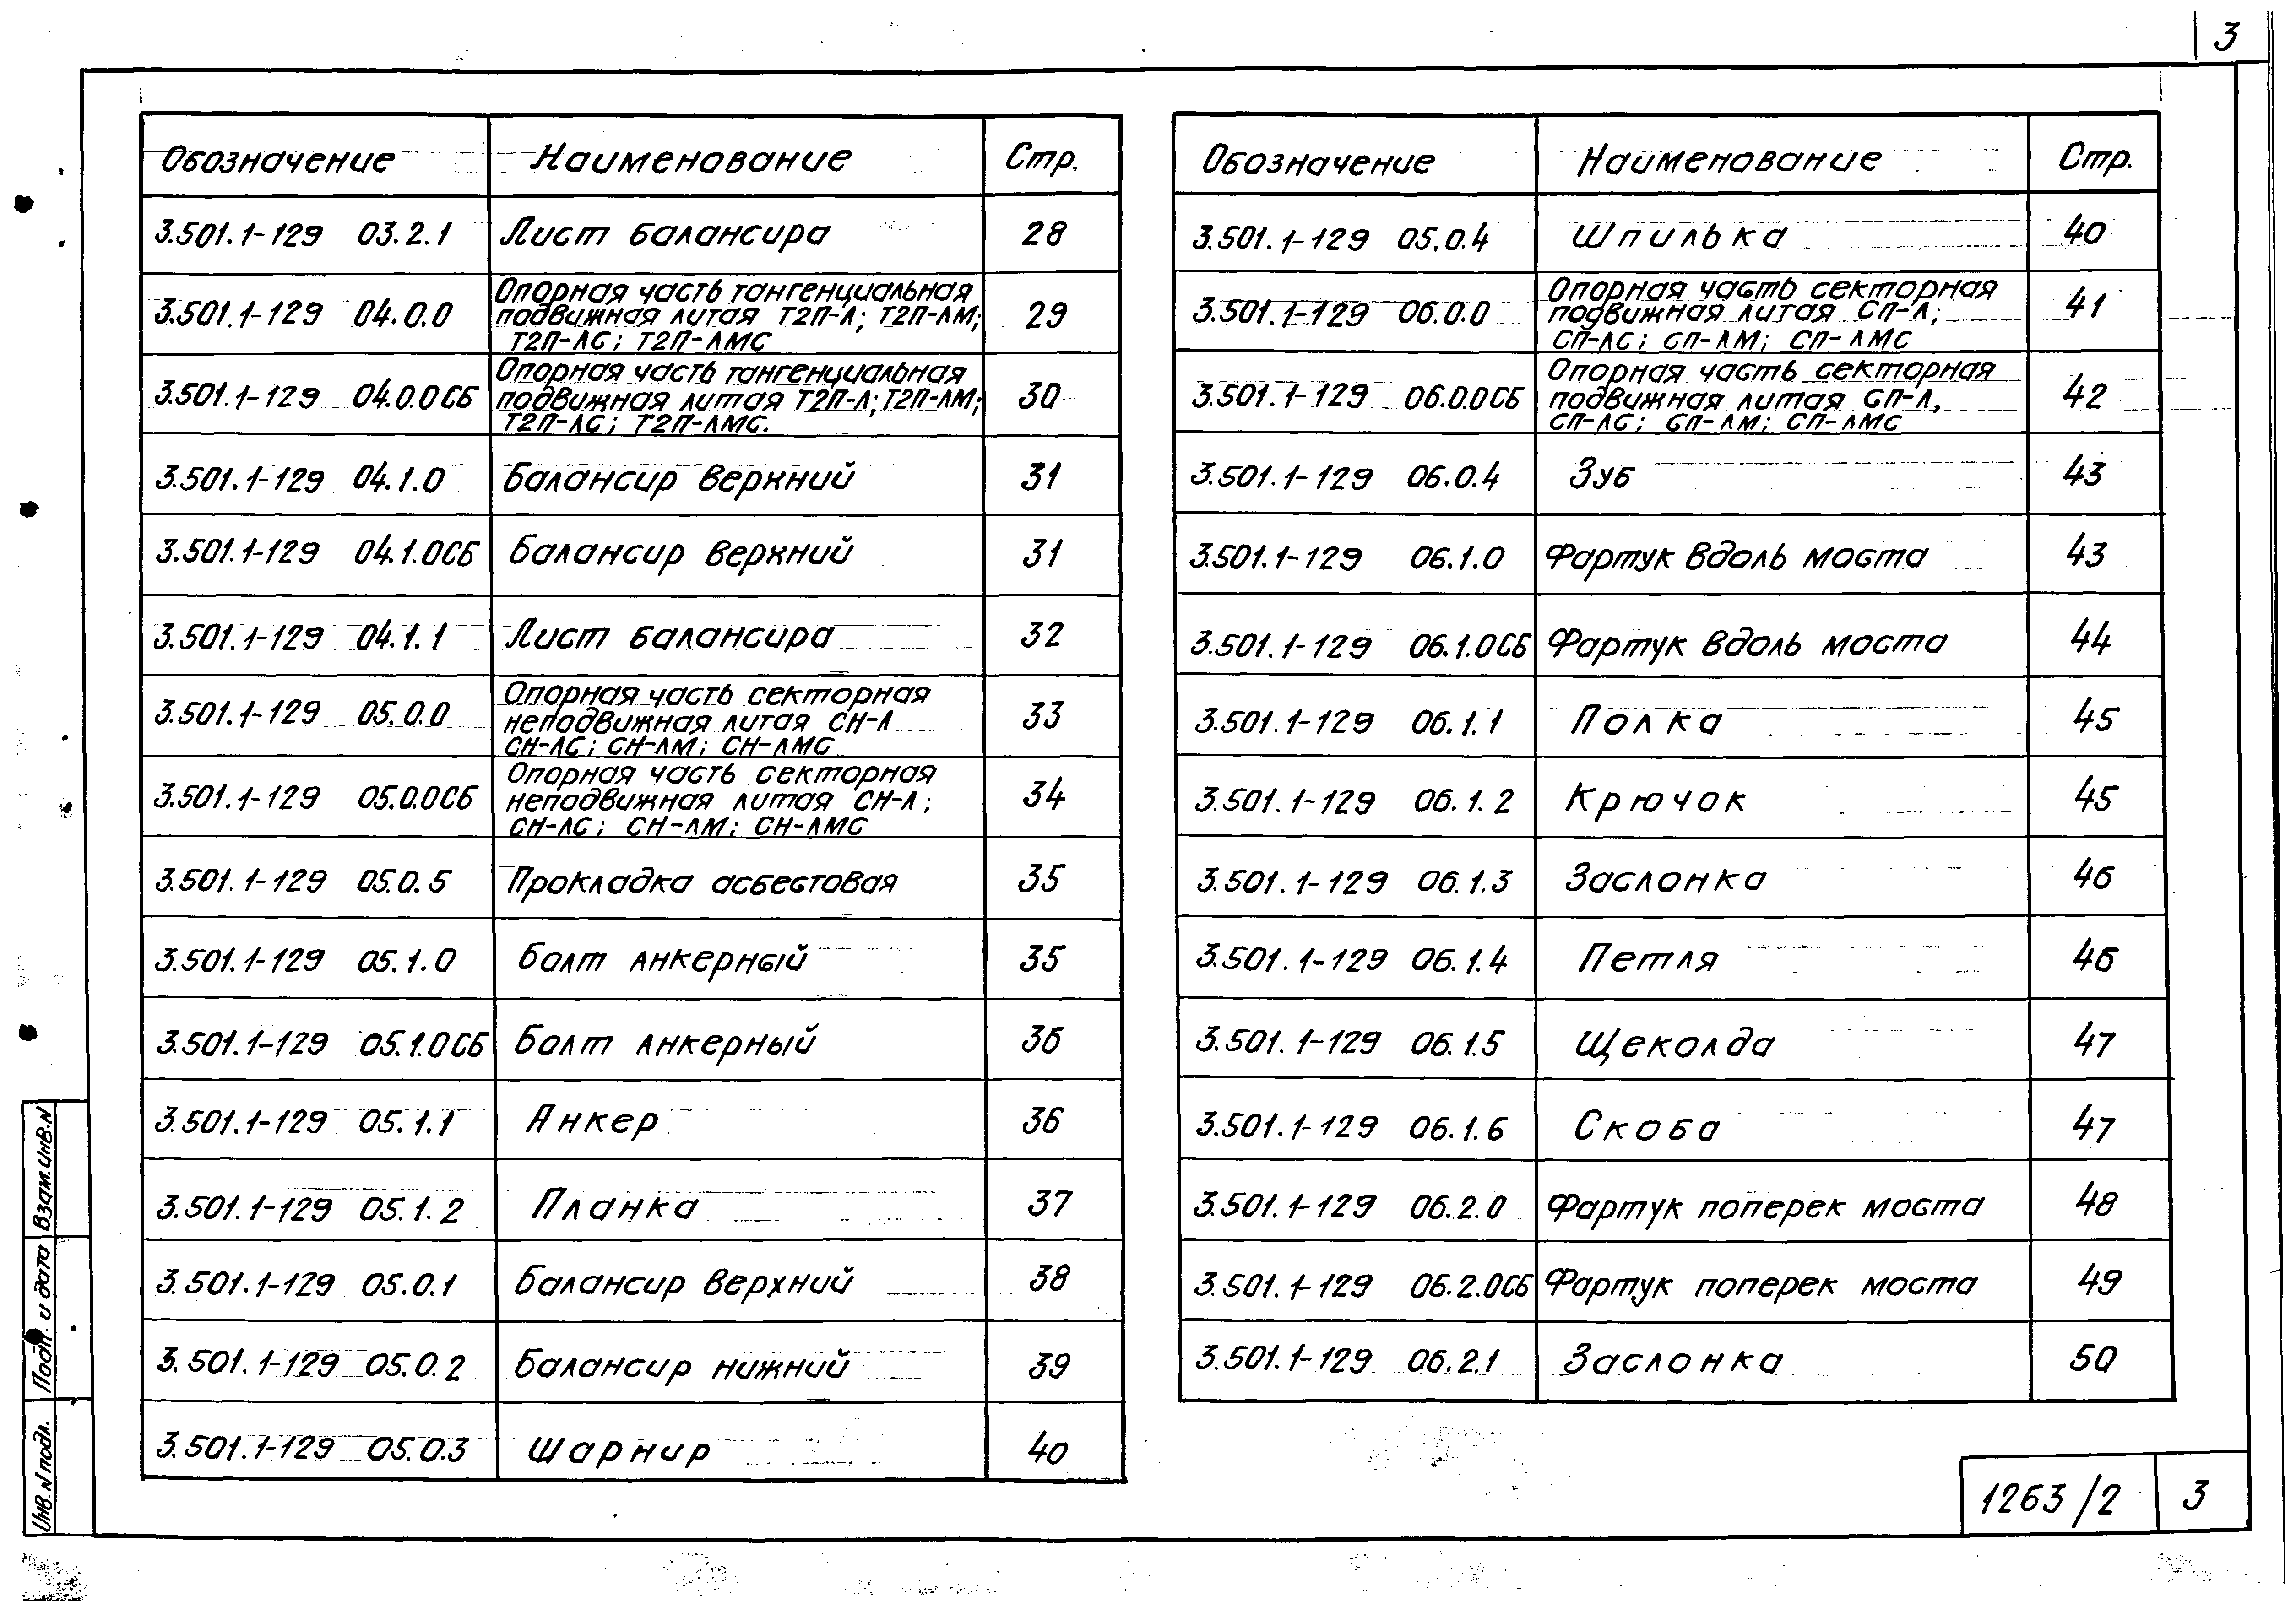 3
Обозначение Наименование Стр.
3.501.1-129 03.2.1 Лист балансира 28
3.501.1-129 04.0.0 Опорная часть тангенциальная
подвижная литая Т2П-Л; Т2П-ЛМ;
Т2П-ЛС; Т2П-ЛМС 29
3.501.1-129 04.0.0СБ Опорная часть тангенциальная
подвижная литая Т2П-Л; Т2П-ЛМ;
Т2П-ЛС; Т2П-ЛМС. 30
3.501.1-129 04.1.0 Балансир верхний 31
3.501.1-129 04.1.0СБ Балансир верхний 31
3.501.1-129 04.1.1 Лист балансира 32
3.501.1-129 05.0.0 Опорная часть секторная
неподвижная литая СН-Л
СН-ЛС; СН-ЛМ; СН-ЛМС 33
3.501.1-129 05.0.0СБ Опорная часть секторная
неподвижная литая СН-Л;
СН-ЛС; СН-ЛМ; СН-ЛМС 34
3.501.1-129 05.0.5 Прокладка асбестовая 35
3.501.1-129 05.1.0 Болт анкерный 35
3.501.1-129 05.1.0СБ Болт анкерный 36
3.501.1-129 05.1.1 Анкер 36
3.501.1-129 05.1.2 Планка 37
3.501.1-129 05.0.1 Балансир верхний 38
3.501.1-129 05.0.2 Балансир нижний 39
3.501.1-129 05.0.3 Шарнир 40
Обозначение Наименование Стр.
3.501.1-129 05.0.4 Шпилька 40
3.501.1-129 06.0.0 Опорная часть секторная
подвижная литая СП-Л;
СП-ЛС; СП-ЛМ; СП-ЛМС 41
3.501.1-129 06.0.0СБ Опорная часть секторная
подвижная литая СП-Л,
СП-ЛС; СП-ЛМ; СП-ЛМС 42
3.501.1-129 06.0.4 Зуб 43
3.501.1-129 06.1.0 Фартук вдоль моста 43
3.501.1-129 06.1.0СБ Фартук вдоль моста 44
3.501.1-129 06.1.1 Полка 45
3.501.1-129 06.1.2 Крючок 45
3.501.1-129 06.1.3 Заслонка 46
3.501.1-129 06.1.4 Петля 46
3.501.1-129 06.1.5 Щеколда 47
3.501.1-129 06.1.6 Скоба 47
3.501.1-129 06.2.0 Фартук поперек моста 48
3.501.1-129 06.2.0СБ Фартук поперек моста 49
3.501.1-129 06.2.1 Заслонка 50
Взам.инв.N
Подп. и дата
Инв.N подл.
1263/2 3